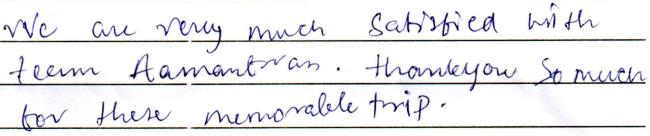 We are very much satisfied with
teem Aamantran. thankyou so much
for these memorable trip.